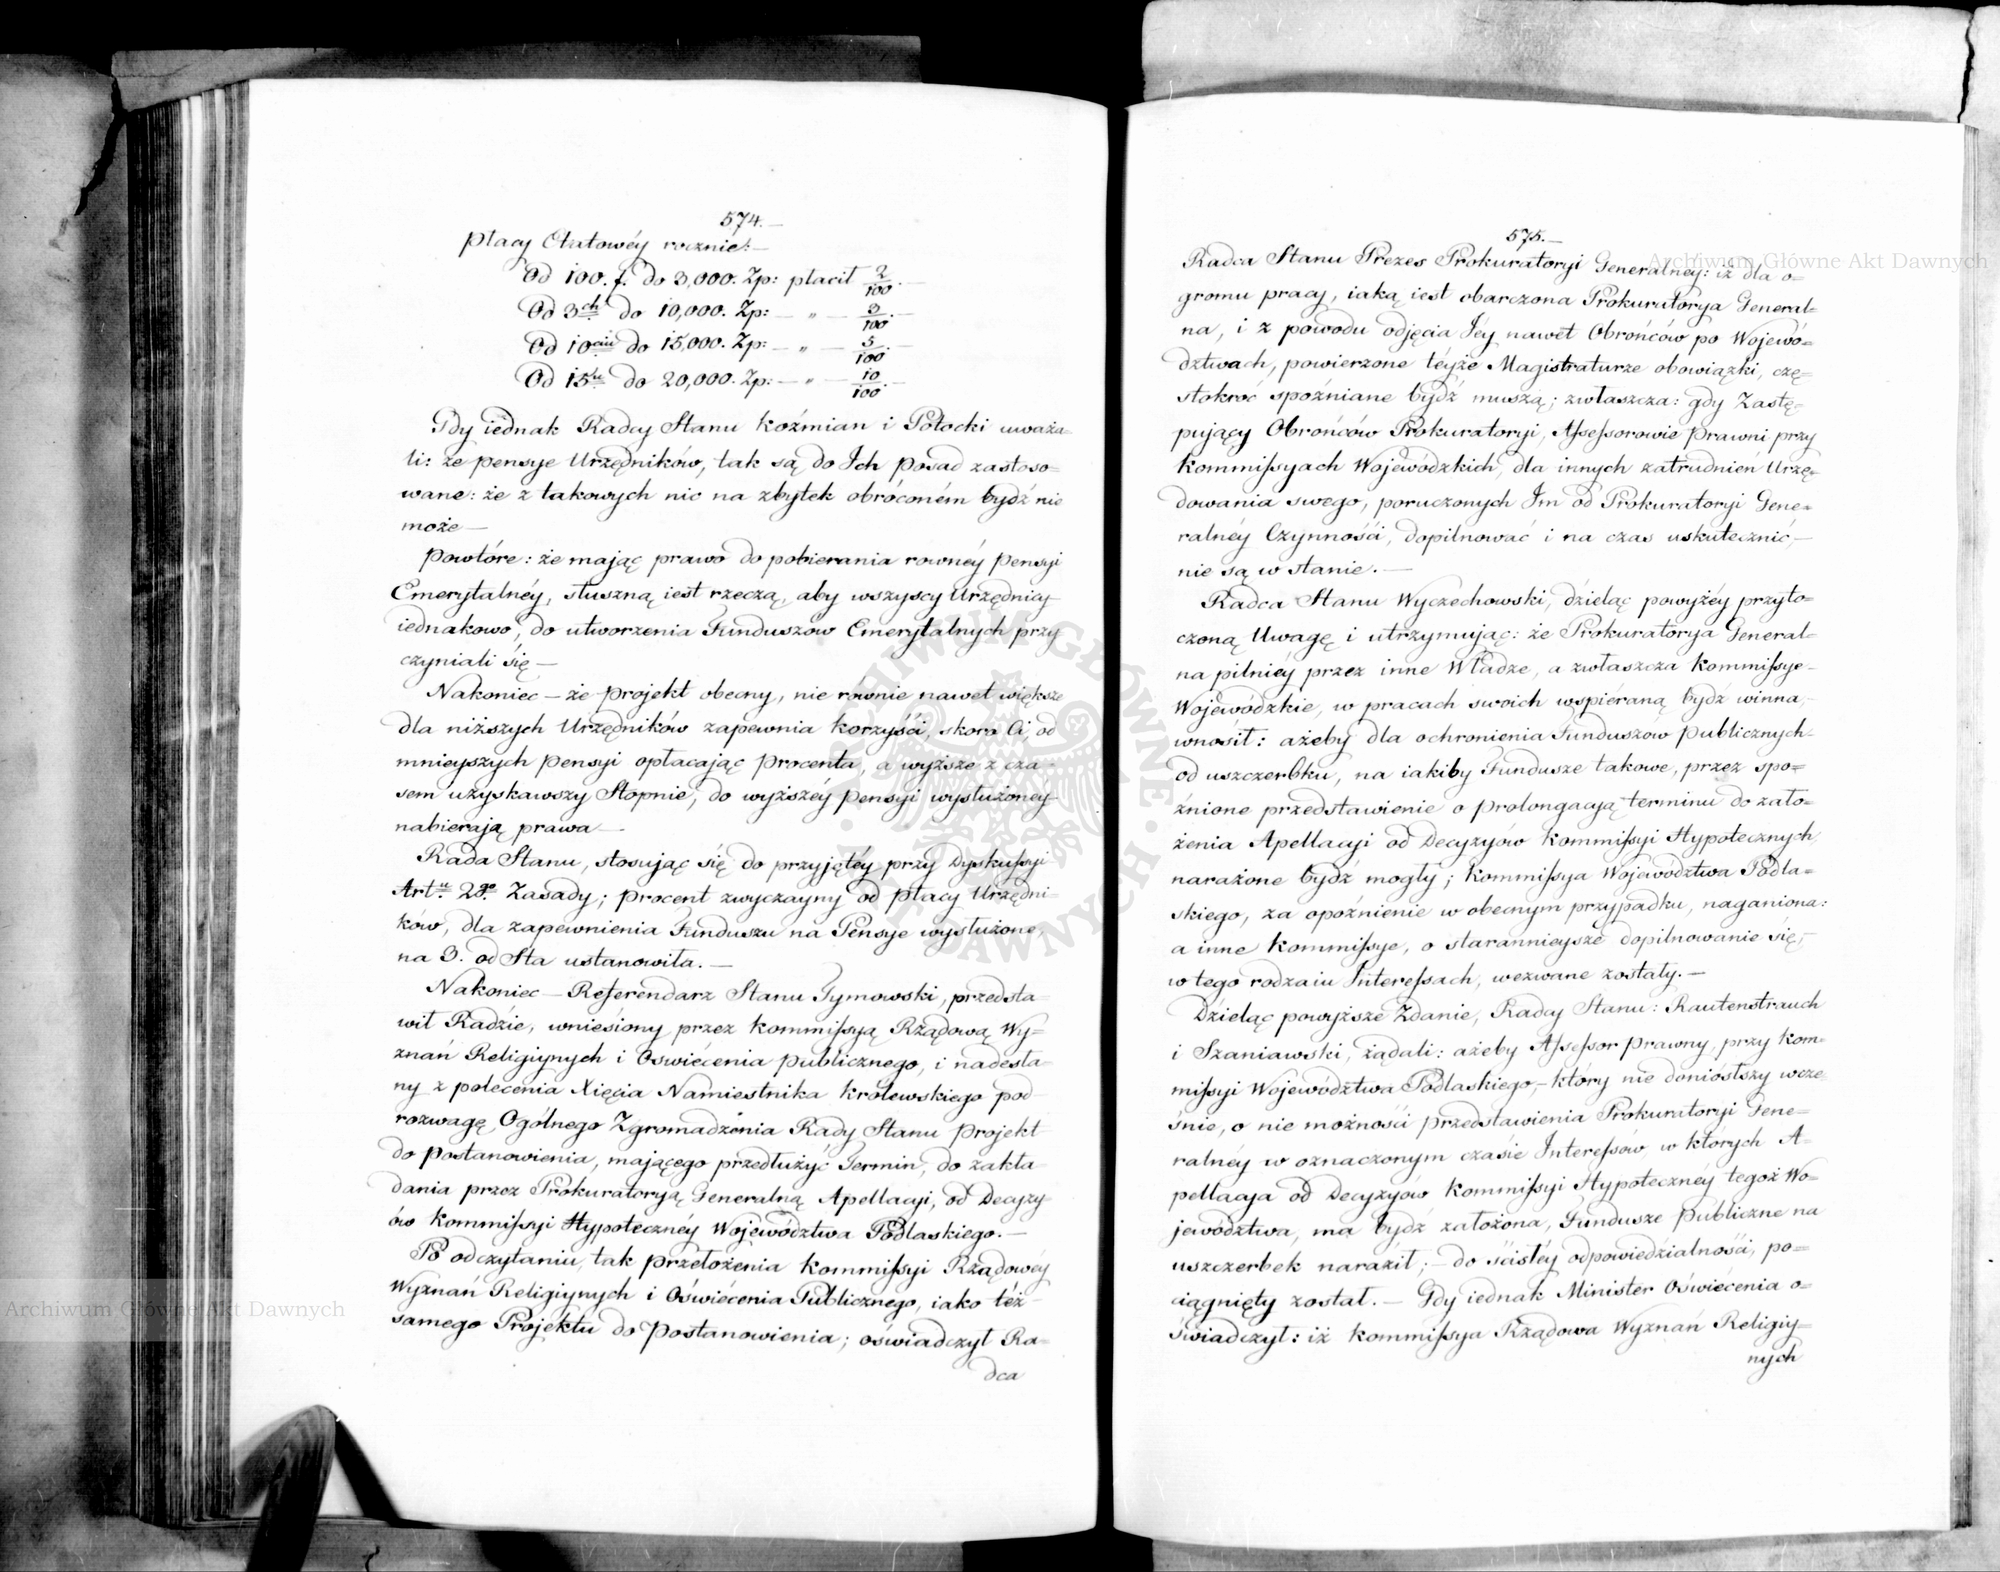 574.—
płacy Etatowéy rocznie:—
Od 100. f. do 3,000. Zp: płacił 2/100.—
Od 3ch do 10,000. Zp: — „ — 3/100.—
Od 10ciu do 15,000. Zp: — „ — 5/100.—
Od 15tu do 20,000. Zp: — „ — 10/100.—
Gdy iednak Radcy Stanu Koźmian i Potocki uważa-
li: że pensye Urzędników, tak są do Ich posad zastoso-
wane: że z takowych nic na zbytek obróconém bydź nie
może —
Powtóre: że mając prawo do pobierania rowney Pensyi
Emerytalnéy, słuszną iest rzeczą, aby wszyscy Urzędnicy
iednakowo, do utworzenia Funduszów Emerytalnych przy
czyniali się —
Nakoniec — że projekt obecny, nie równie nawet większe
dla niższych Urzędników zapewnia korzyści, skoro Ci, od
mnieyszych pensyi opłacając procenta, a wyższe z cza-
sem uzyskawszy Stopnie, do wyższéy pensyi wysłużoney
nabierają prawa —
Rada Stanu, stosując się do przyjętéy przy Dyskussyi
Artu 28go Zasady; procent zwyczayny od płacy Urzędni-
ków, dla zapewnienia Funduszu na Pensye wysłużone,
na 3. od Sta ustanowiła. —
Nakoniec — Referendarz Stanu Tymowski, przedsta-
wił Radzie, wniesiony przez Kommissyą Rządową Wy=
znań Religiynych i Oświécenia publicznego, i nadesła-
ny z polecenia Xięcia Namiestnika Królewskiego pod
rozwagę Ogólnego Zgromadzenia Rady Stanu projekt
do postanowienia, mającego przedłużyć Termin, do zakła-
dania przez Prokuratoryą Generalną Apellacyi, od Decyzy-
ów Kommissyi Hypotecznéy Województwa Podlaskiego. —
Po odczytaniu, tak przełożenia Kommissyi Rządowéy
Wyznań Religiynych i Oświécenia Publicznego, iako téż
samego Projektu do postanowienia; oświadczył Ra-
dca
575.—
Radca Stanu Prezes Prokuratoryi Generalney: iż dla o=
gromu pracy, iaką iest obarczona Prokuratorya General=
na, i z powodu odjęcia Jéy nawet Obrońców po Wojewó=
dztwach, powierzone téyże Magistraturze obowiązki, czę=
stokroć spoźniane bydź muszą; zwłaszcza: gdy Zastę=
pujący Obrońców Prokuratoryi, Assessorowie Prawni przy
Kommissyach Wojewódzkich, dla innych zatrudnień Urzę=
dowania swego, poruczonych Im od Prokuratoryi Gene=
ralnéy Czynności, dopilnować i na czas uskutecznić,—
nie są w stanie. —
Radca Stanu Wyczechowski, dzieląc powyżéy przyto=
czoną Uwagę i utrzymując: że Prokuratorya General=
na pilniéy przez inne Władze, a zwłaszcza Kommissye-
Wojewódzkie, w pracach swoich wspiéraną bydź winna,
wnosił: ażeby dla ochronienia Funduszow publicznych
od uszczerbku, na iakiby Fundusze takowe, przez spo=
źnione przedstawienie o prolongacyą terminu do zało=
żenia Apellacyi od Decyzyów Kommissyi Hypotecznych,
narażone bydź mogły; Kommissya Województwa Podla=
skiego, za opoźnienie w obecnym przypadku, naganiona:
a inne Kommissye, o starannieysze dopilnowanie się,—
w tego rodzaiu Interessach, wezwane zostały. —
Dzieląc powyższe Zdanie, Radcy Stanu: Rautenstrauch
i Szaniawski, żądali: ażeby Assessor Prawny, przy Kom=
missyi Województwa Podlaskiego,— który nie doniosłszy wcze=
śnie, o nie możności przedstawienia Prokuratoryi Gene=
ralnéy w oznaczonym czasie Interessów, w których A=
pellacya od Decyzyów Kommissyi Hypotecznéy tegoż Wo=
jewództwa, ma bydź założona, Fundusze publiczne na
uszczerbek naraził; — do ścisłéy odpowiedzialności, po=
ciągnięty został. — Gdy iednak Minister Oświécenia o=
świadczył: iż Kommissya Rządowa Wyznań Religiy=
nych
Archiwum Główne Akt Dawnych
Archiwum Główne Akt Dawnych
ARCHIWUM GŁÓWNE AKT DAWNYCH